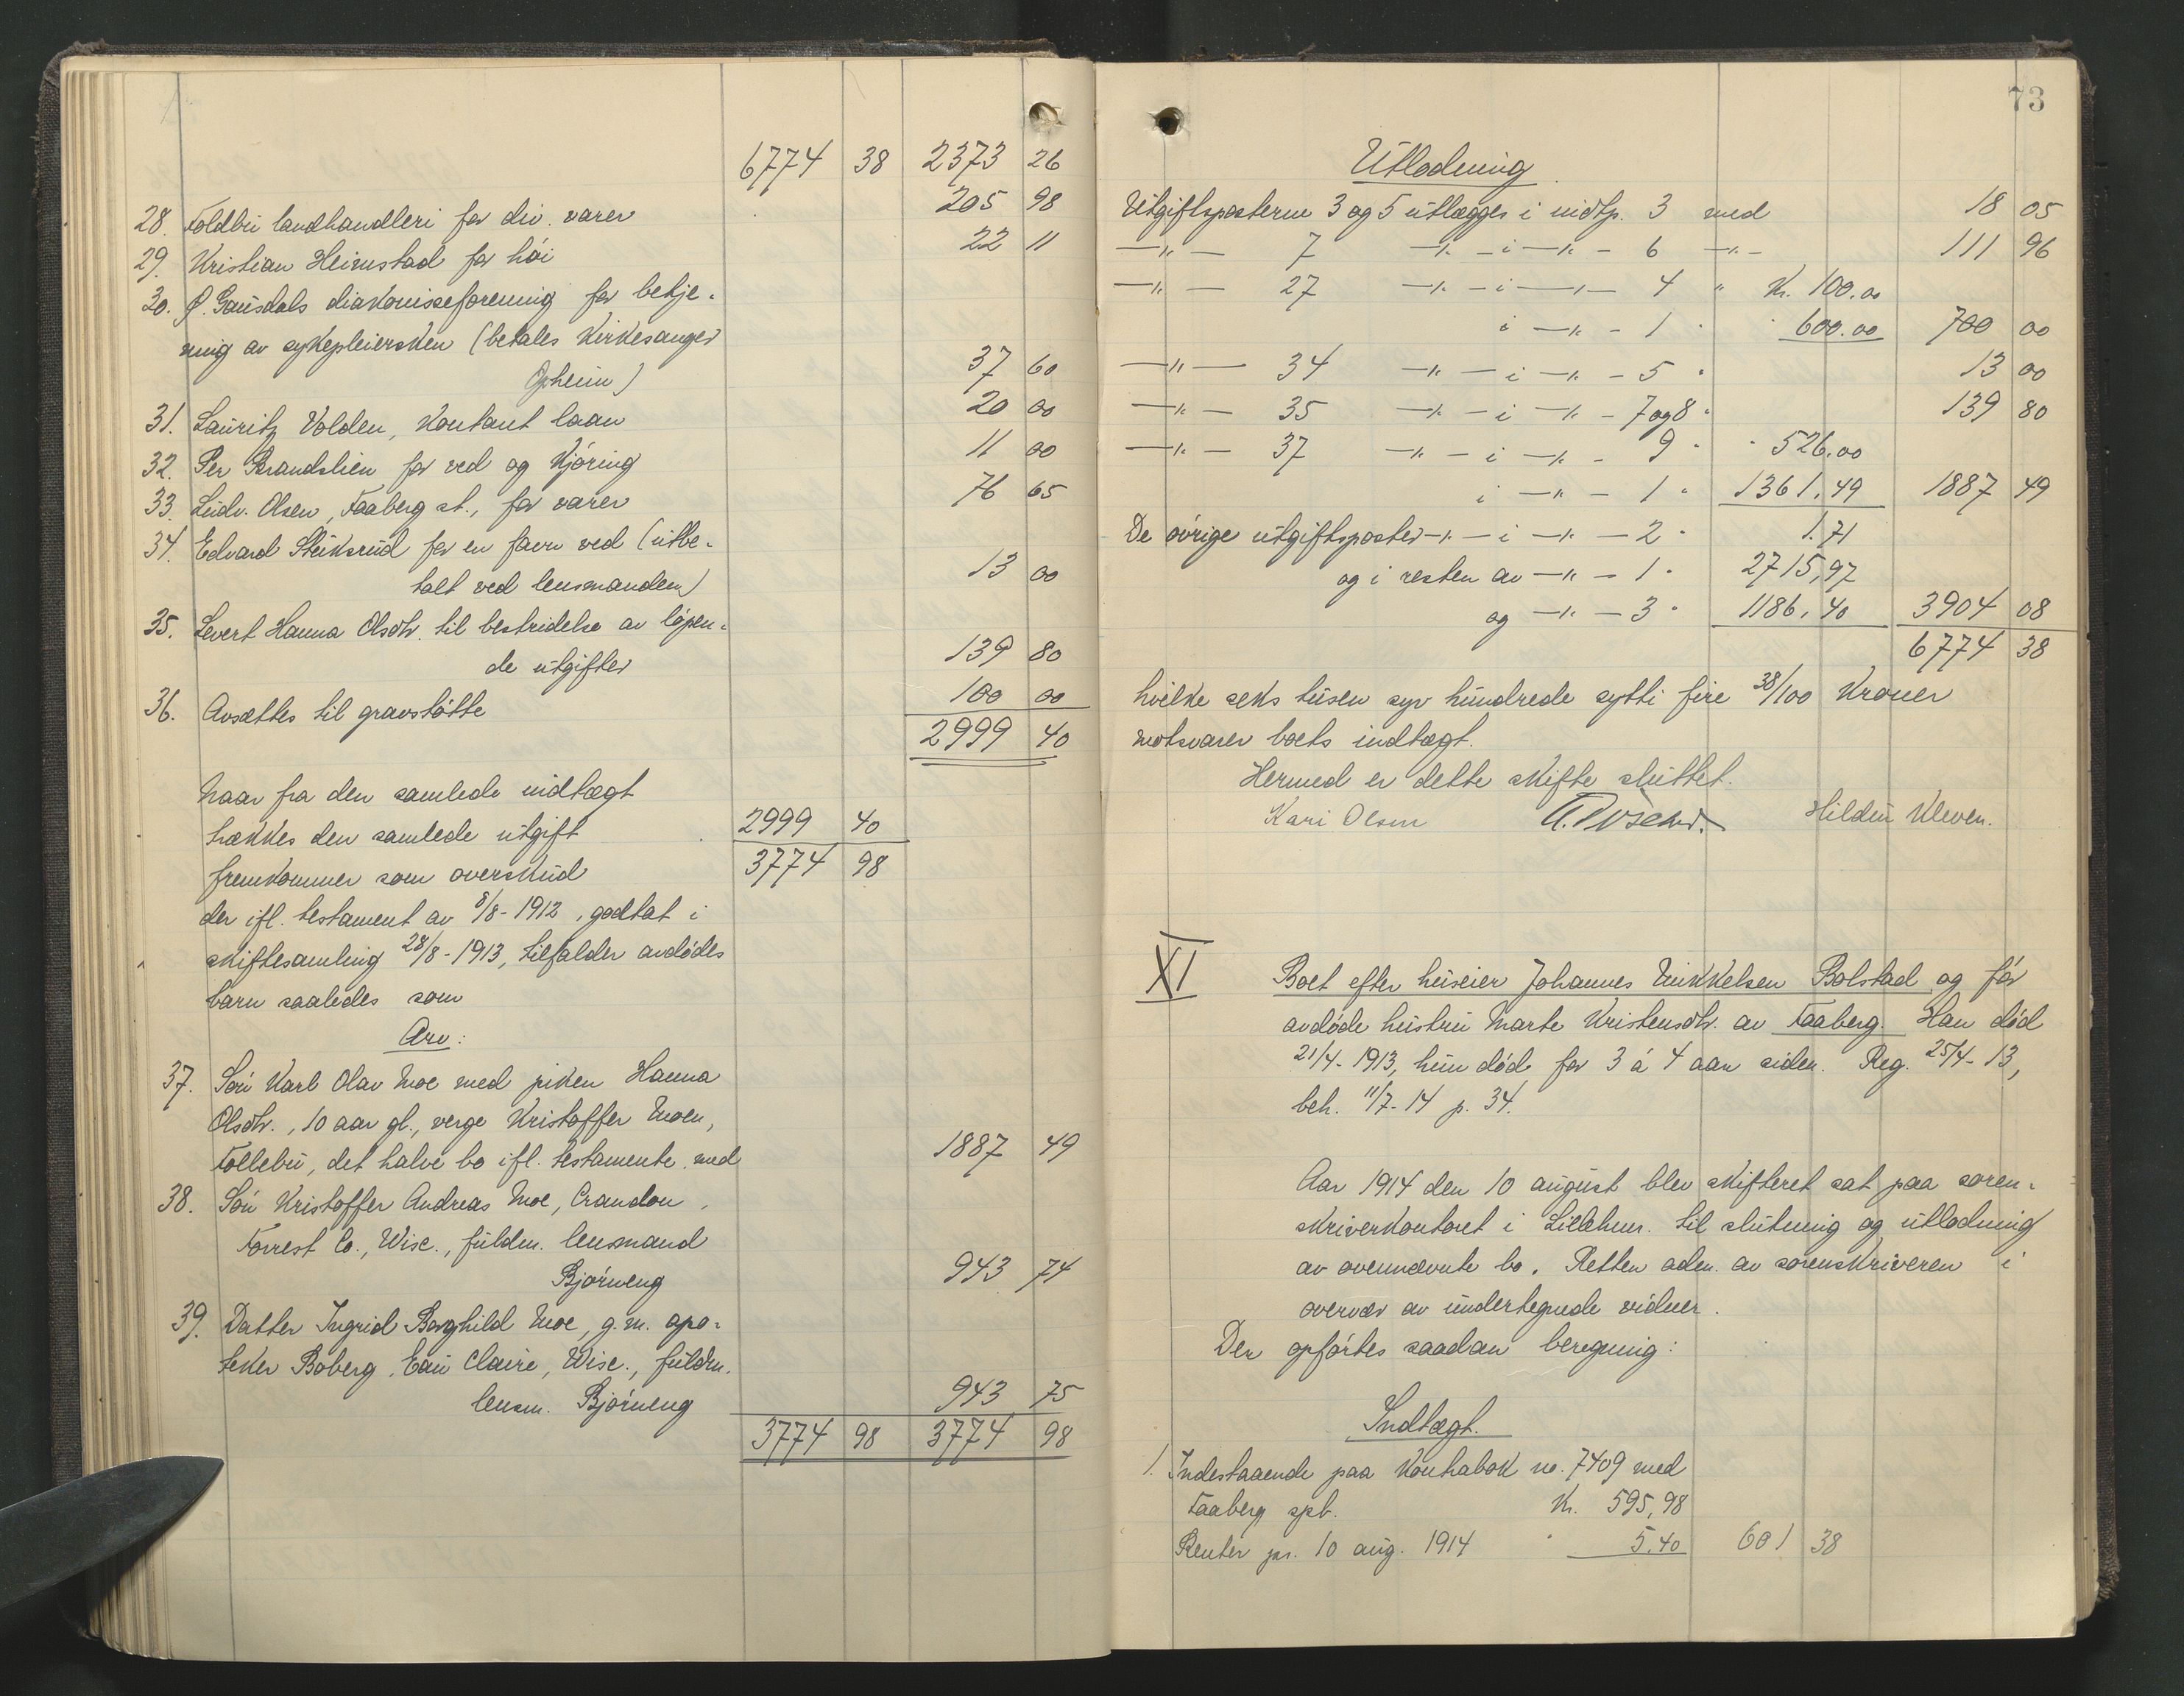 6774 38 2373 26
28. Foldbu landhandleri for div. varer 205 98
29. Kristian Heimstad for höi 22 11
30. Ø. Gausdals diakonisseforening for betje-
ning av sykepleiersken (betales kirkesanger
Opheim) 37 60
31. Lauritz Volden, kontant laan 20 00
32. Per Strandlien for ved og kjöring 11 00
33. Ludv. Olsen, Faaberg st., for varer 76 65
34. Edvard Stuksrud for en favn ved (utbe-
talt ved lensmanden) 13 00
35. Levert Hanna Olsdtr. til bestridelse av löpen-
de utgifter 139 80
36. Avsættes til gravstötte 100 00
2999 40
Naar fra den samlede indtægt
trækkes den samlede utgift 2999 40
fremkommer som overskud 3774 98
der ifl. testament av 8/8-1912, godtat i
skiftesamling 28/8-1913, tilfalder avdödes
barn saaledes som
Arv:
37. Sön Karl Olav Moe med piken Hanna
Olsdtr., 10 aar gl., verge Kristoffer Moen,
Follebu, det halve bo ifl. testamente med 1887 49
38. Sön Kristoffer Andreas Moe, Crandon,
Forrest Co., Wisc., fuldm. lensmand
Bjørneng 943 74
39. Datter Ingrid Borghild Moe, g.m. apo-
teker Boberg, Eau Claire, Wisc., fuldm.
lensm. Bjørneng 943 75
3774 98 3774 98
73
Utlodning
Utgiftsposterne 3 og 5 utlægges i indtp. 3 med 18 05
—"— 7 —"— i —"— 6 —"— 111 96
—"— 27 —"— i —"— 4 " Kr. 100.00
i —"— 1 " " 600.00 700 00
—"— 34 —"— i —"— 5 " 13 00
—"— 35 —"— i —"— 7 og 8 " 139 80
—"— 37 —"— i —"— 9 " " 526.00
i —"— 1 " 1361.49 1887 49
De övrige utgiftsposter —"— i —"— 2 " 1.71
og i resten av —"— 1 " 2715,97
og —"— 3 " 1186.40 3904 08
6774 38
hvilke seks tusen syv hundrede sytti fire 38/100 kroner
motsvarer boets indtægt.
Hermed er dette skifte sluttet.
Kari Olsen Hildur Kleven.
XI
Boet efter huseier Johannes Mikkelsen Bolstad og för
avdöde hustru Marte Kristensdtr. av Faaberg. Han död
21/4-1913, hun död for 3 á 4 aar siden. Reg. 25/4-13,
beh. 11/7-14 p. 34.
Aar 1914 den 10 august blev skifteret sat paa soren-
skriverkontoret i Lillehmr. til slutning og utlodning
av ovennævnte bo. Retten adm. av sorenskriveren i
overvær av undertegnede vidner.
Der opförtes saadan beregning:
Indtægt.
1. Indestaaende paa kontrabok no. 7409 med
Faaberg spb. Kr. 595,98
Renter pr. 10 aug. 1914 " 5.40 601 38